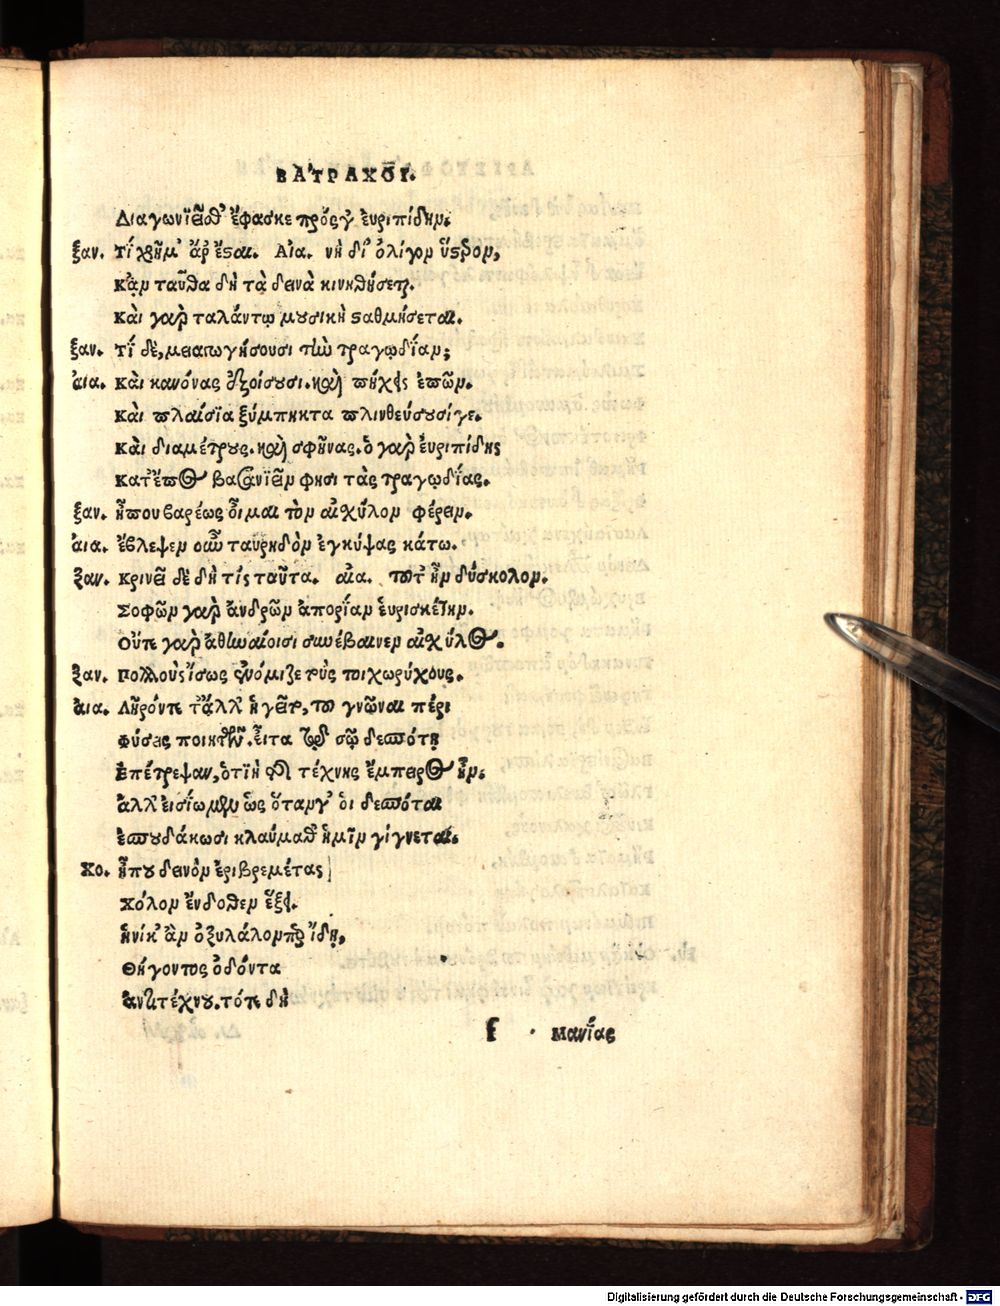 ΒΑ'ΤΡΑΧΟΙ.
Διαγωνιεῖσθ' ἔφασκε πρός γ' ἐυριπίδην.
ξαν. τί χρῆμ' ἄρ' ἔσαι. Αἰα. νὴ δί' ὀλίγον ὕστερον,
Κἂν ταῦθα δὴ τὰ δεινὰ κινηθήσεται.
Καὶ γὰρ ταλάντῳ μουσικὴ σαθμήσεται.
ξαν. τί δὲ, μειαγωγήσουσι τὴν τραγῳδίαν;
ἀια. Καὶ κανόνας ἐξοίσουσι. καὶ πήχεις ἐπῶν.
Καὶ πλαίσια ξύμπηκτα πλινθεύσουσίγε.
Καὶ διαμέτρους. καὶ σφῆνας. ὁ γὰρ ἐυριπίδης
Κατ' ἔπος βασανιεῖν φησι τὰς τραγῳδίας.
ξαν. ἤπου βαρέως οἶμαι τὸν αἰσχύλον φέρειν.
ἀια. ἔβλεψεν οὖν ταυρηδὸν ἐγκύψας κάτω.
ξαν. Κρινεῖ δὲ δὴ τίς ταῦτα. αἰα. τοῦτ' ἦν δύσκολον.
Σοφῶν γὰρ ἀνδρῶν ἀπορίαν ἑυρισκέτην.
Οὔτε γὰρ ἀθηναίοισι συνέβαινεν αἰσχύλος.
ξαν. Πολλοὺς ἴσως ἐνόμιζε τοὺς τοιχωρύχους.
ἀια. Λῆρόντε τἆλλ' ἡγεῖτο, τοῦ γνῶναι πέρι
Φύσεις ποιητῶν. εἶτα τῷ σῷ δεσπότῃ
Ἐπέτρεψαν, ὁτιὴ τῆς τέχνης ἔμπειρος ἦν.
ἀλλ' εἰσίωμεν ὡς ὅταν γ' ὁι δεσπόται
ἐσπουδάκωσι κλαύμαθ' ἡμῖν γίγνεται.
Χο. ἦπου δεινὸν ἐριβρεμέτας
Χόλον ἔνδοθεν ἕξει.
ἡνίκ' ἂν ὀξυλάλον περ ἴδῃ,
Θήγοντος ὀδόντα
ἀντιτέχνου. τότε δὴ
f Μανίας
Digitalisierung gefördert durch die Deutsche Forschungsgemeinschaft - DFG